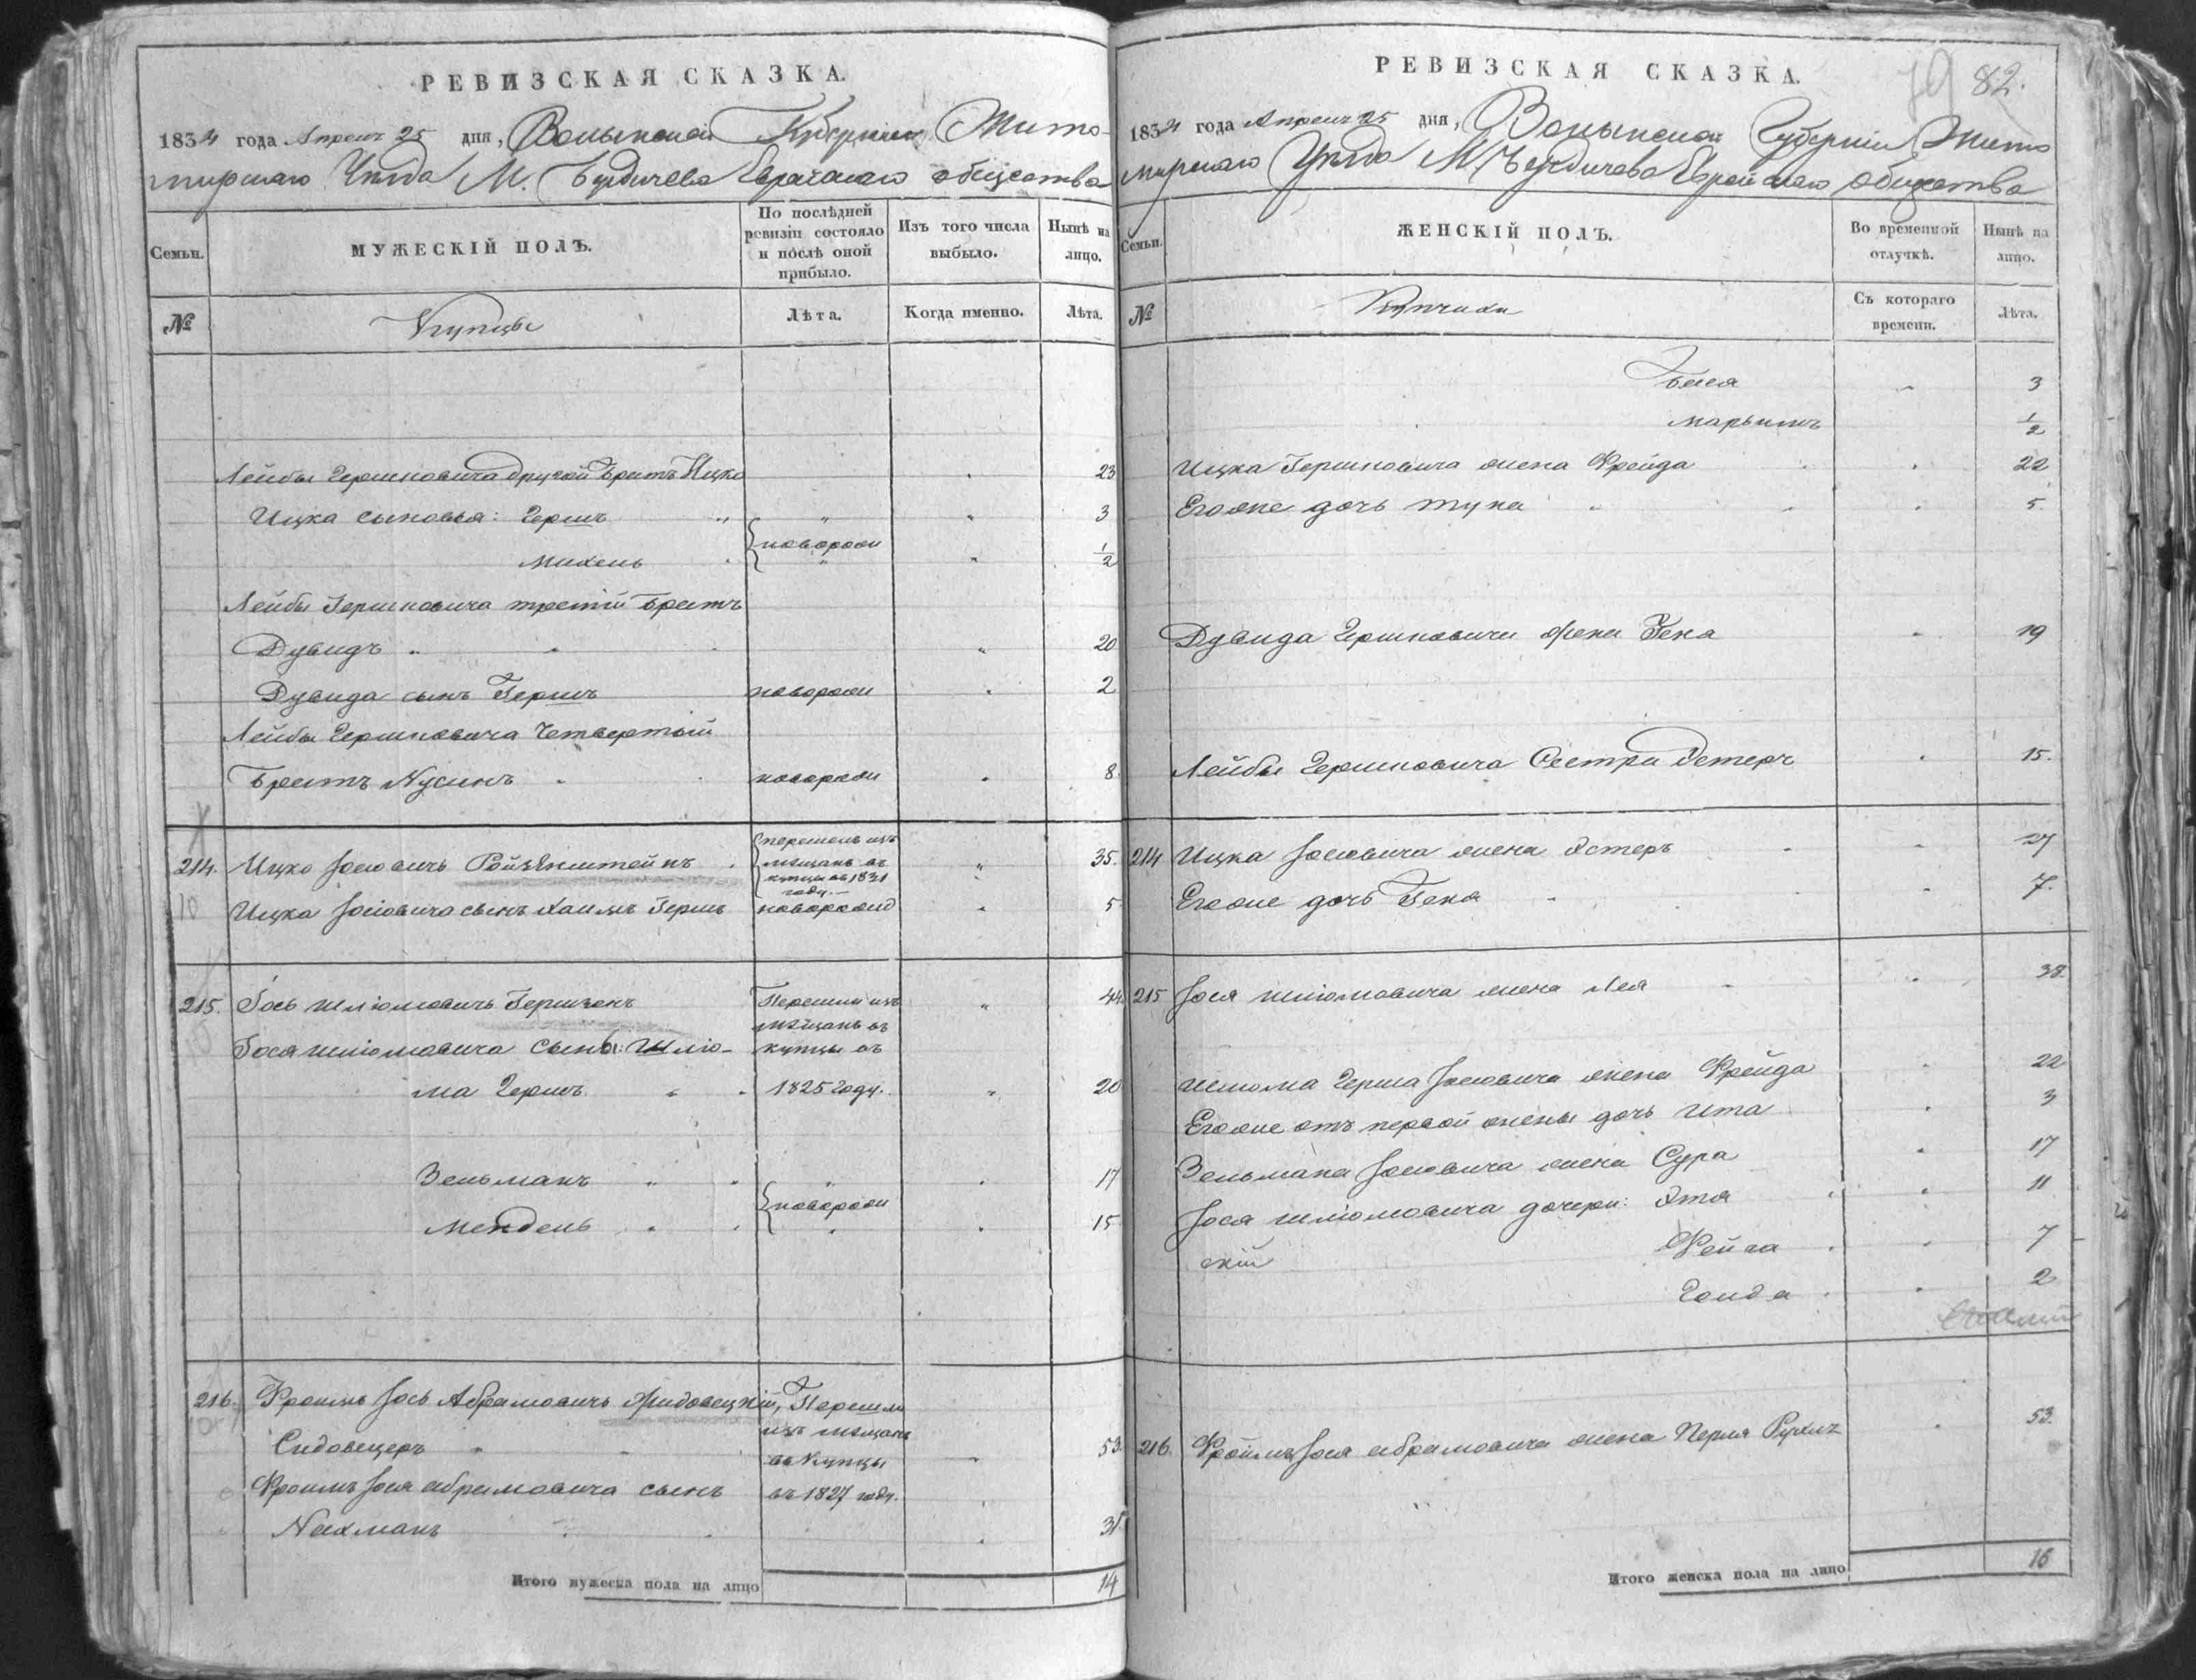 РЕВИЗСКАЯ СКАЗКА.
1834 года Апреля 25 дня, Волынской Губернии Жито-
мирскаго Уезда М. Бердичева Еврейскаго общества
Семьи.
МУЖЕСКІЙ ПОЛЪ.
По послѣдней ревизіи состояло и послѣ оной прибыло.
Изъ того числа выбыло.
Нынѣ на лицо.
№
Купцы
Лѣта.
Когда именно.
Лѣта.
Лейбы Гершковича другой братъ Ицко 23
Ицка сыновья: Гершъ " " " 3
новорож
Михель " " 1/2
Лейбы Гершковича третій братъ
Дувидъ " " 20
Дувида сынъ Гершъ новорож " 2
Лейбы Гершковича Четвертый
братъ Нусинъ новорож " 8
214. Ицко Іосіовичъ Ройзенштейнъ перешелъ изъ мѣщанъ въ купцы въ 1831 году.— " 35.
10
Ицка Іосіовича сынъ Хаимъ Гершъ новорожд " 5
215. Іось Шліомовичъ Гершзонъ Перешли изъ " 44
мѣщанъ въ
Іося Шліомовича сыны: Шліо- купцы въ
ма Гершъ 1825 году. " 20
Зельманъ " " " 17
новорож
Мендель " " " 15
216. Фроимъ Іось Абрамовичъ Жидовецкій, Перешли
изъ мѣщанъ
Сидовецеръ " 53.
въ Купцы
Фроимъ Іося Абрамовича сынъ въ 1827 году.
Нахманъ 31
Итого мужеска пола на лицо 14
РЕВИЗСКАЯ СКАЗКА.
79 82.
1834 года Апреля 25 дня, Волынской Губерніи Жито
мирскаго Уезда М. Бердичева Еврейскаго общества
Семьи.
ЖЕНСКІЙ ПОЛЪ.
Во временной отлучкѣ.
Нынѣ на лицо.
№
Купчихи
Съ котораго времени.
Лѣта.
Бася " 3
Марьямъ 1/2
Ицка Гершковича жена Фрейда " 22
Егоже дочь " 5.
Дувида Гершковича жена Гена " 19
Лейбы Гершковича Сестра Эстеръ " 15.
214 Ицка Іосіовича жена Эстеръ " 27
Егоже дочь Гена " 7.
215 Іося Шліомовича жена Лея " 38.
Шліома Герша Іосіовича жена Фрейда " 22
Егоже отъ первой жены дочь Ита " 3
Зельмана Іосіовича жена Сура " 17
Іося Шліомовича дочери: Этя " 11
скій Фейга " 7
Голда " 2
216. Фроимъ Іося Абрамовича жена Перля Рухль " 53.
Итого женска пола на лицо 16